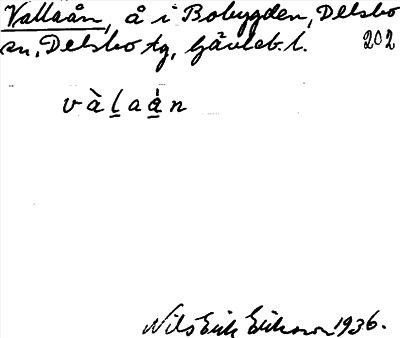 Vallaån, å i Bobygden, Delsbo
sn, Delsbo tg, Gävleb. l. 202
v à l a å n
Nils Erik Eriksson 1936.